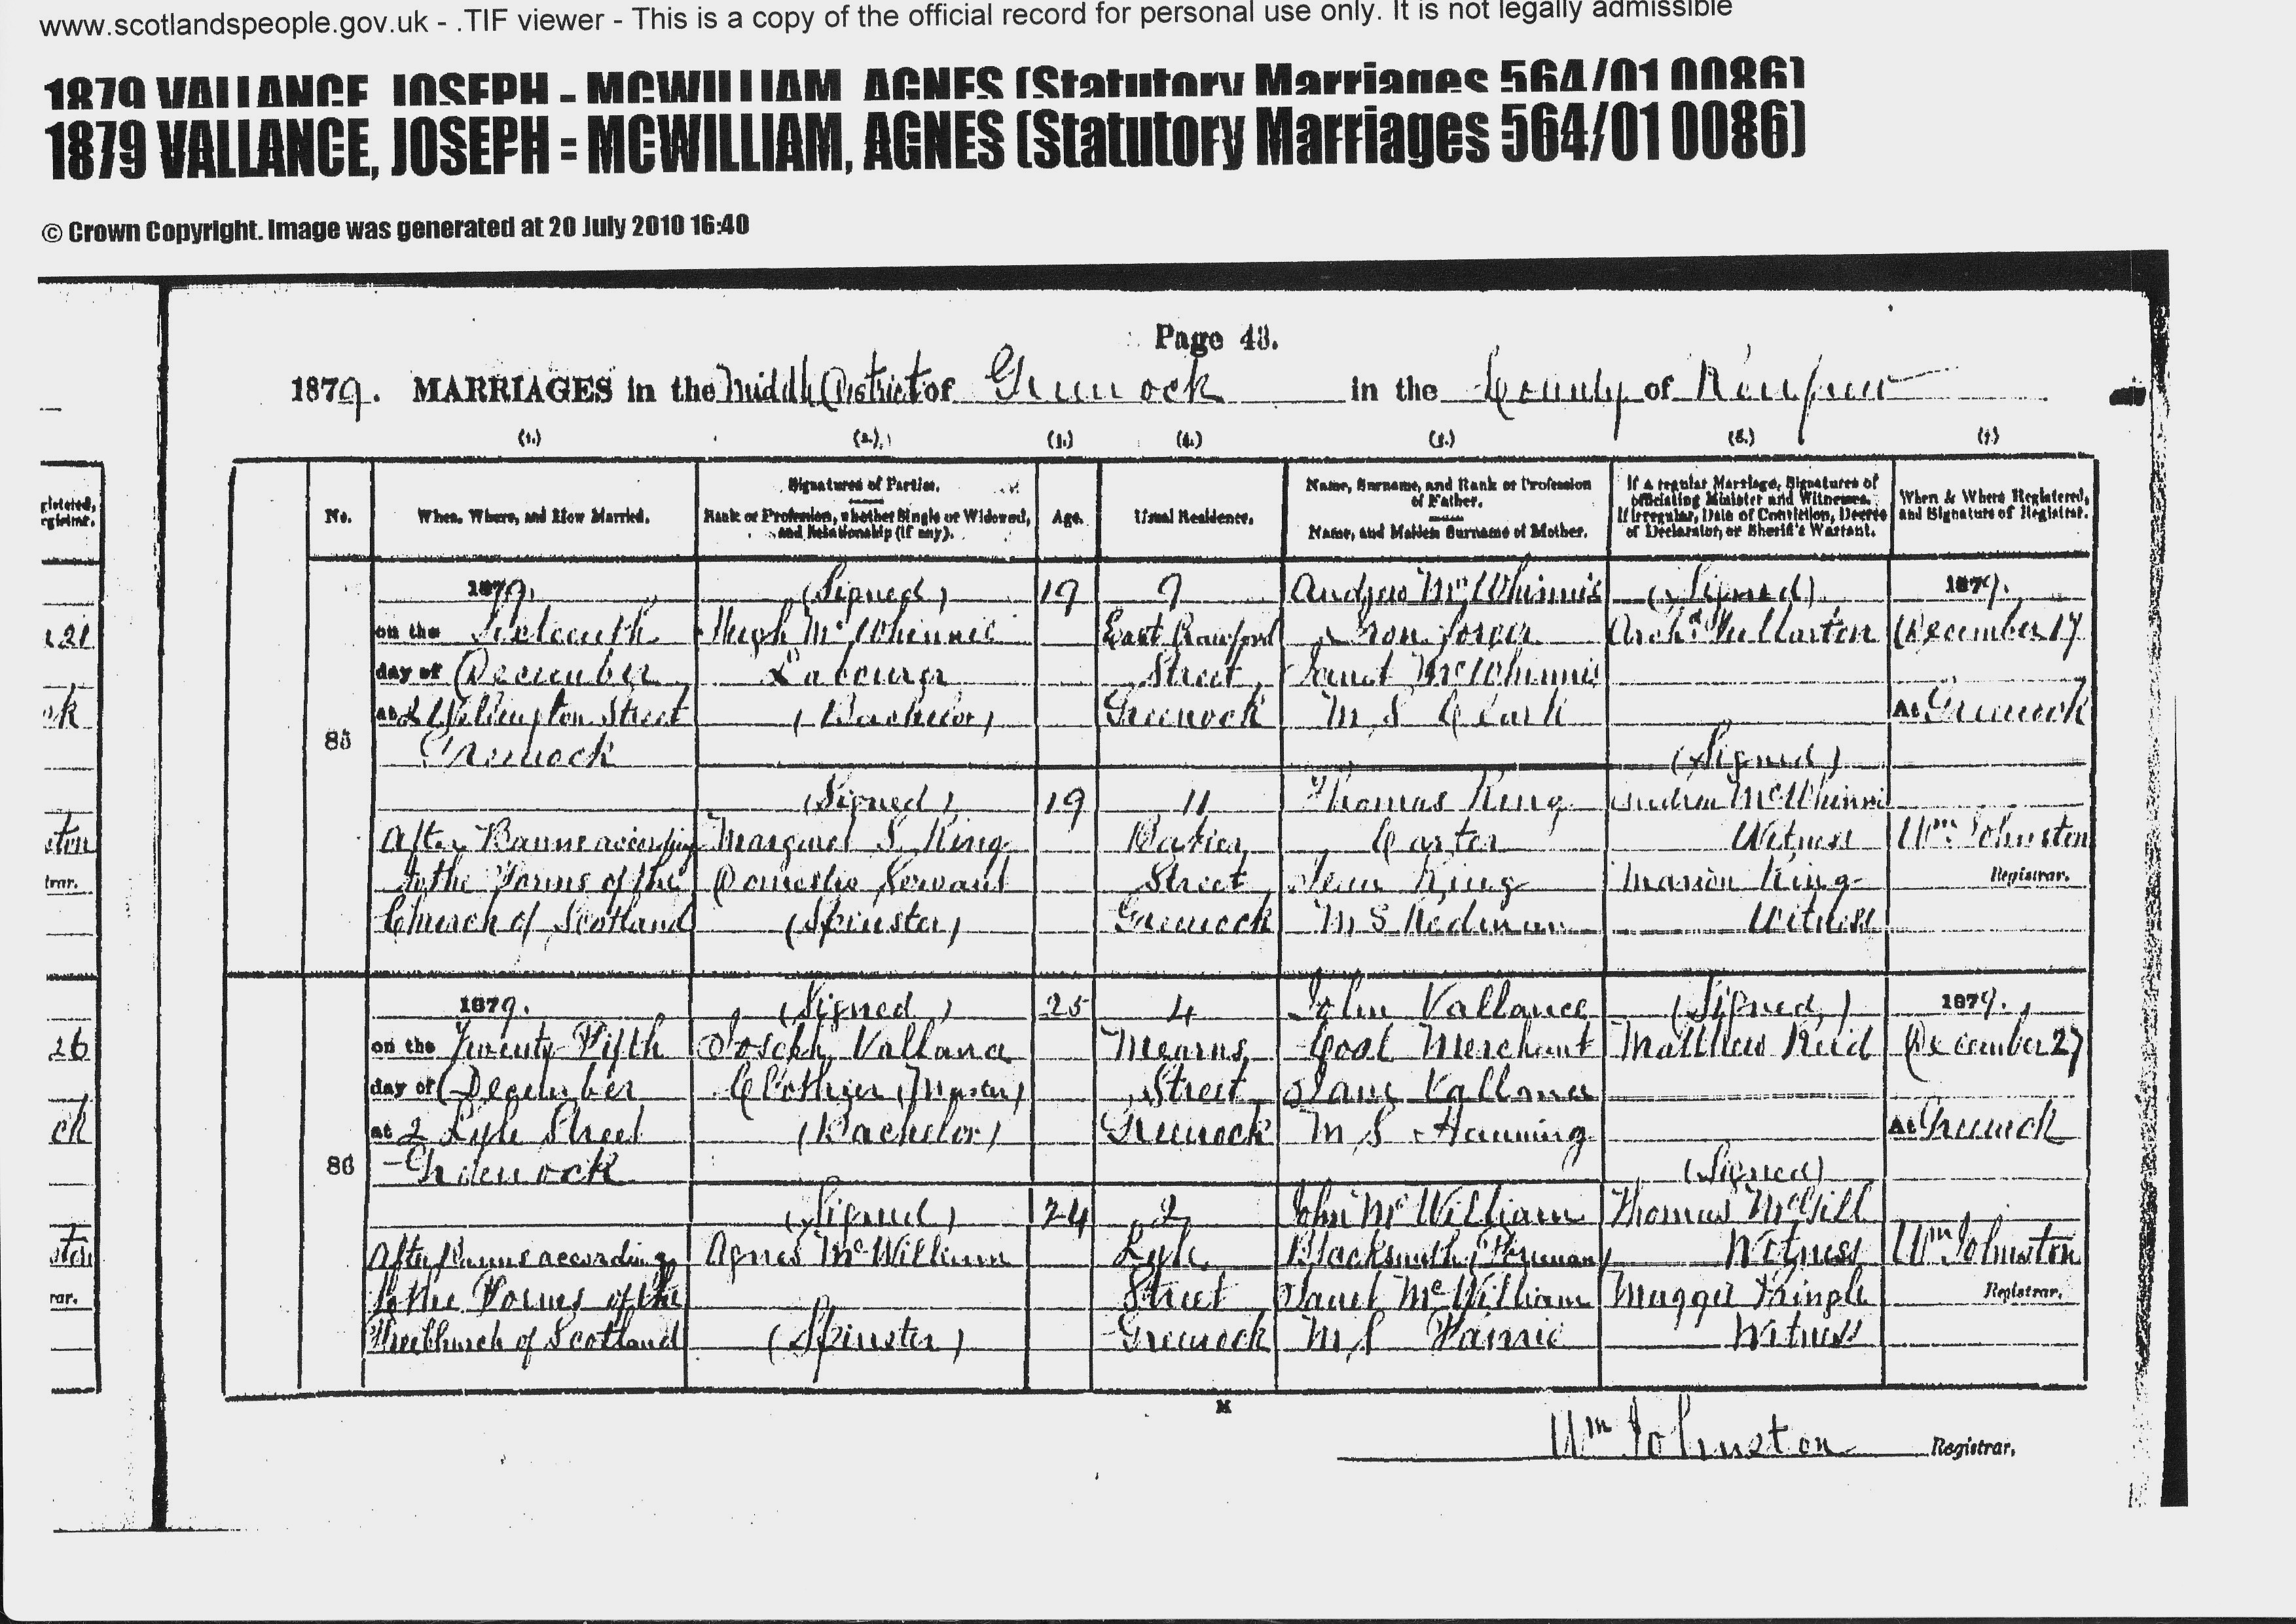 www.scotlandspeople.gov.uk - .TIF viewer - This is a copy of the official record for personal use only. It is not legally admissible
1879 VALLANCE, JOSEPH - MCWILLIAM, AGNES (Statutory Marriages 564/01 0086)
1879 VALLANCE, JOSEPH = MCWILLIAM, AGNES (Statutory Marriages 564/01 0086)
© Crown Copyright. Image was generated at 20 July 2010 16:40
Page 43.
1879. MARRIAGES in the Middle District of Greenock in the County of Renfrew
(1.) (2.) (3.) (4.) (5.) (6.) (7.)
No.
When, Where, and How Married.
Signatures of Parties.
Rank or Profession, whether Single or Widowed,
and Relationship (if any).
Age.
Usual Residence.
Name, Surname, and Rank or Profession
of Father.
Name, and Maiden Surname of Mother.
If a regular Marriage, Signatures of
officiating Minister and Witnesses.
If irregular, Date of Conviction, Decree
of Declarator, or Sheriff's Warrant.
When & Where Registered,
and Signature of Registrar.
85
1879.
on the Sixteenth
day of December
at 2 Wellington Street
Greenock
After Banns according
to the Forms of the
Church of Scotland
(Signed)
Hugh McWhinnie
Labourer
(Bachelor)
(Signed)
Margaret S. King
Domestic Servant
(Spinster)
19
19
9
East Crawford
Street
Greenock
11
Baker
Street
Greenock
Andrew McWhinnie
Iron forger
Janet McWhinnie
M.S Clark
Thomas King
Carter
Jean King
M S
(Signed)
Archd Fullarton
(Signed)
Andrew McWhinnie
Witness
Marion King
Witness
1879.
December 17
At Greenock
Wm Johnston
Registrar.
86
1879.
on the Twenty Fifth
day of December
at 2 Lyle Street
Greenock
After Banns according
to the Forms of the
Free Church of Scotland
(Signed)
Joseph Vallance
Clothier (Master)
(Bachelor)
(Signed)
Agnes McWilliam
(Spinster)
25
24
4
Mearns
Street
Greenock
2
Lyle
Street
Greenock
John Vallance
Coal Merchant
Jane Vallance
M.S Hanning
John McWilliam
Blacksmith (Foreman)
Janet McWilliam
M.S
(Signed)
Matthew Reid
(Signed)
Thomas McGill
Witness
Maggie Pringle
Witness
1879.
December 27
At Greenock
Wm Johnston
Registrar.
Wm Johnston Registrar.